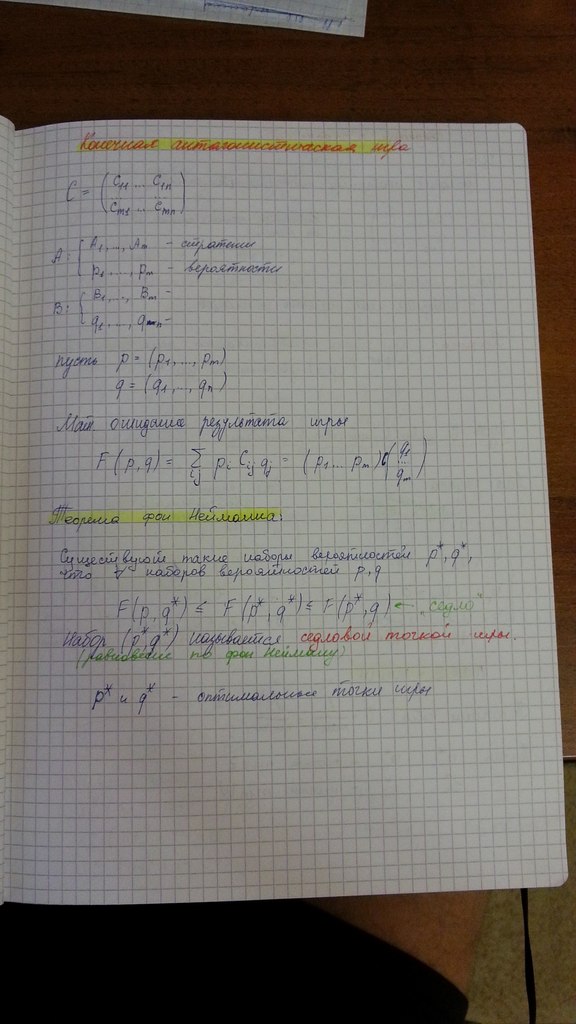 Конечная антагонистическая игра
C = ( C11 ... C1n
Cm1 ... Cmn )
A: { A1, ..., Am - стратегии
p1, ..., pm - вероятности
B: { B1, ..., Bm -
q1, ..., qn -
пусть p = (p1, ..., pm)
q = (q1, ..., qn)
Мат. ожидание результата игры
F(p,q) = ∑ij pi Cij qj = (p1 ... pm) C (q1 ... qm)
Теорема фон Неймана:
Существуют такие наборы вероятностей p*, q*,
что ∀ наборов вероятностей p, q
F(p, q*) ≤ F(p*, q*) ≤ F(p*, q) ← „седло“
Набор (p*, q*) называется седловой точкой игры.
(равновесие по фон Нейману)
p* и q* - оптимальные точки игры